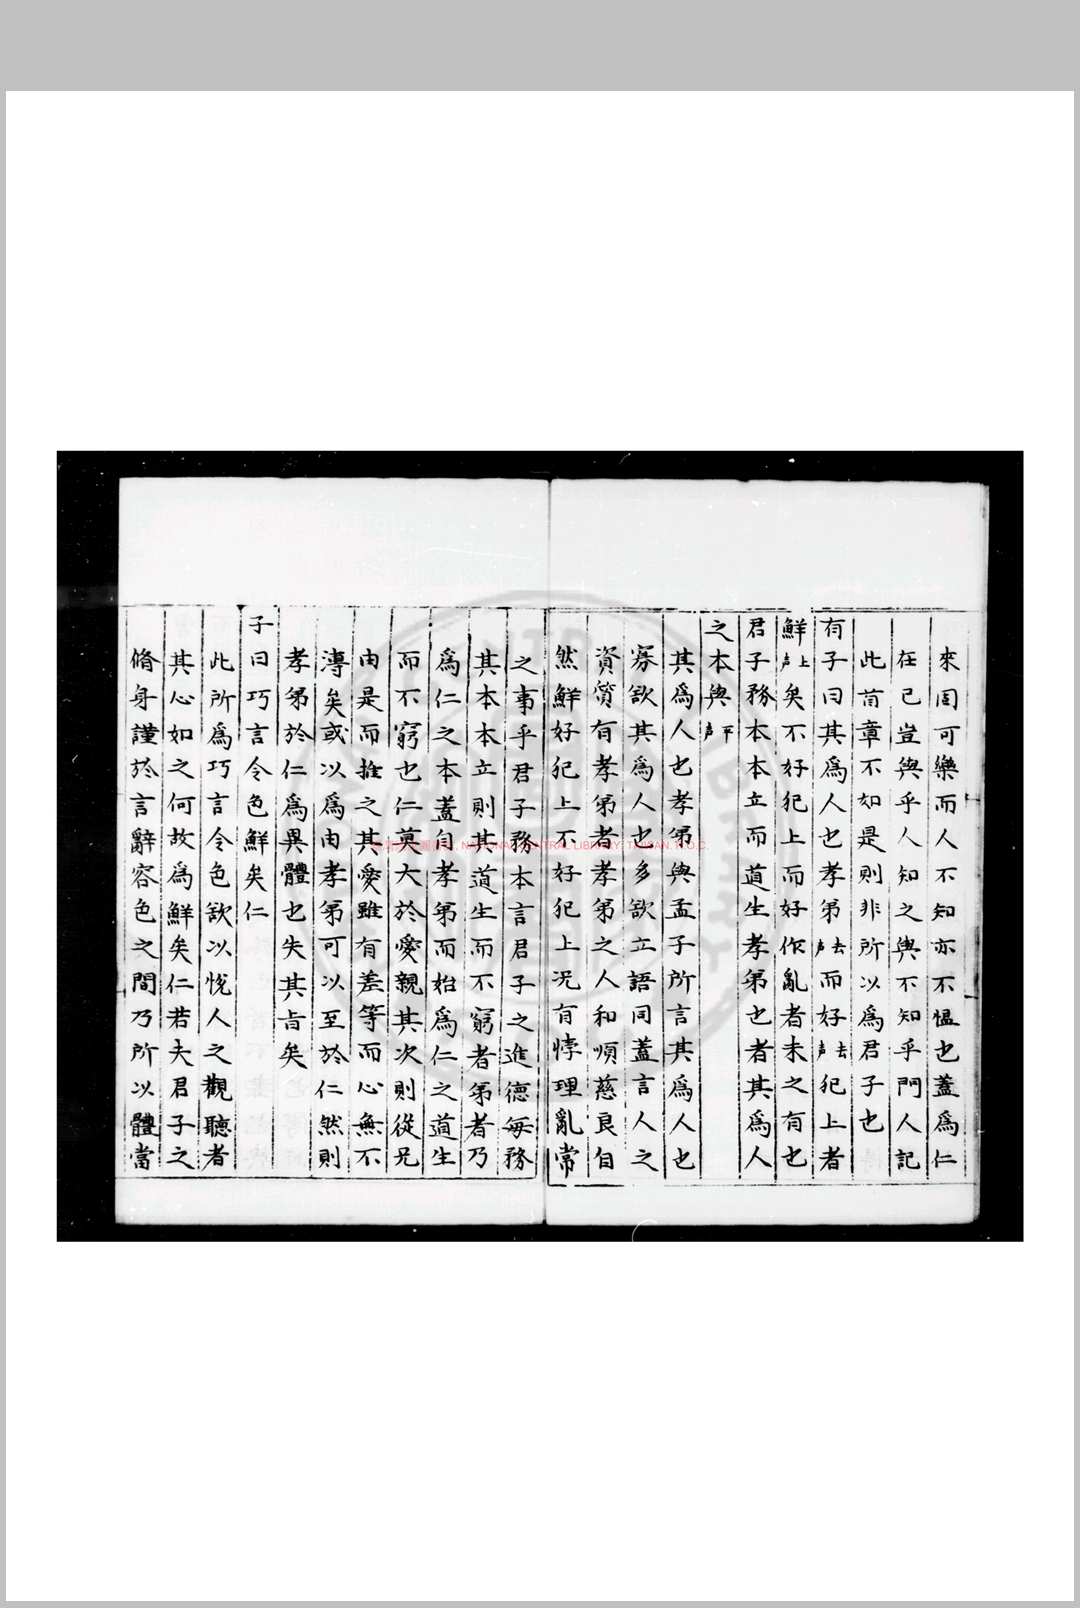 來固可樂而人不知亦不慍也蓋為仁
在己豈與乎人知之與不知乎門人記
此首章不如是則非所以為君子也
有子曰其為人也孝弟去声而好去声犯上者
鮮上声矣不好犯上而好作亂者未之有也
君子務本本立而道生孝弟也者其為人
之本與平声
其為人也孝弟與孟子所言其為人也
寡欲其為人也多欲立語同蓋言人之
資質有孝弟者孝弟之人和順慈良自
然鮮好犯上不好犯上况有悖理亂常
之事乎君子務本言君子之進德每務
其本本立則其道生而不窮者弟者乃
為仁之本蓋自孝弟而始為仁之道生
而不窮也仁莫大於愛親其次則從兄
由是而推之其愛雖有差等而心無不
溥矣或以為由孝弟可以至於仁然則
孝弟於仁為異體也失其旨矣
子曰巧言令色鮮矣仁
此所為巧言令色欲以悅人之觀聽者
其心如之何故為鮮矣仁若夫君子之
脩身謹於言辭容色之間乃所以體當